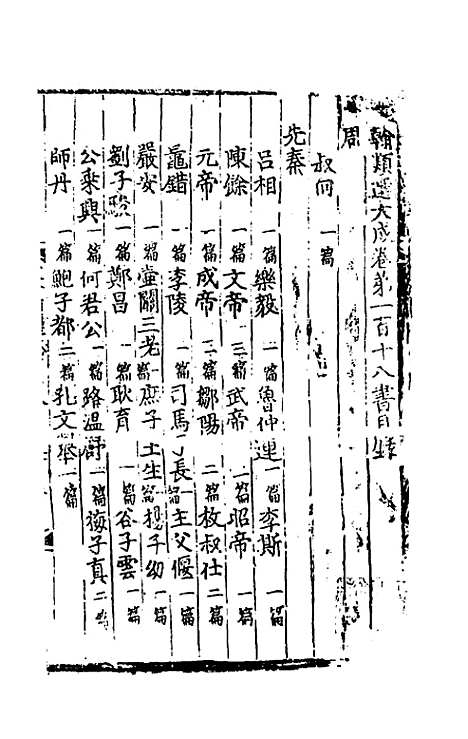 翰類選大成卷第一百十八書目錄
周
叔向 一篇
先秦
呂相 一篇 樂毅 一篇 魯仲連 一篇 李斯 一篇
陳餘 一篇 文帝 三篇 武帝 一篇 昭帝 一篇
元帝 一篇 成帝 三篇 鄒陽 二篇 枚叔 二篇
鼂錯 一篇 李陵 一篇 司馬 長 一篇 主父偃 一篇
嚴安 一篇 壺關三老 一篇 庶子王生 一篇 千幼 一篇
劉子駿 一篇 鄭昌 一篇 耿育 一篇 谷子雲 一篇
公乘興 一篇 何君公 一篇 路溫舒 一篇 梅子真 二篇
師丹 一篇 鮑子都 二篇 孔文舉 一篇